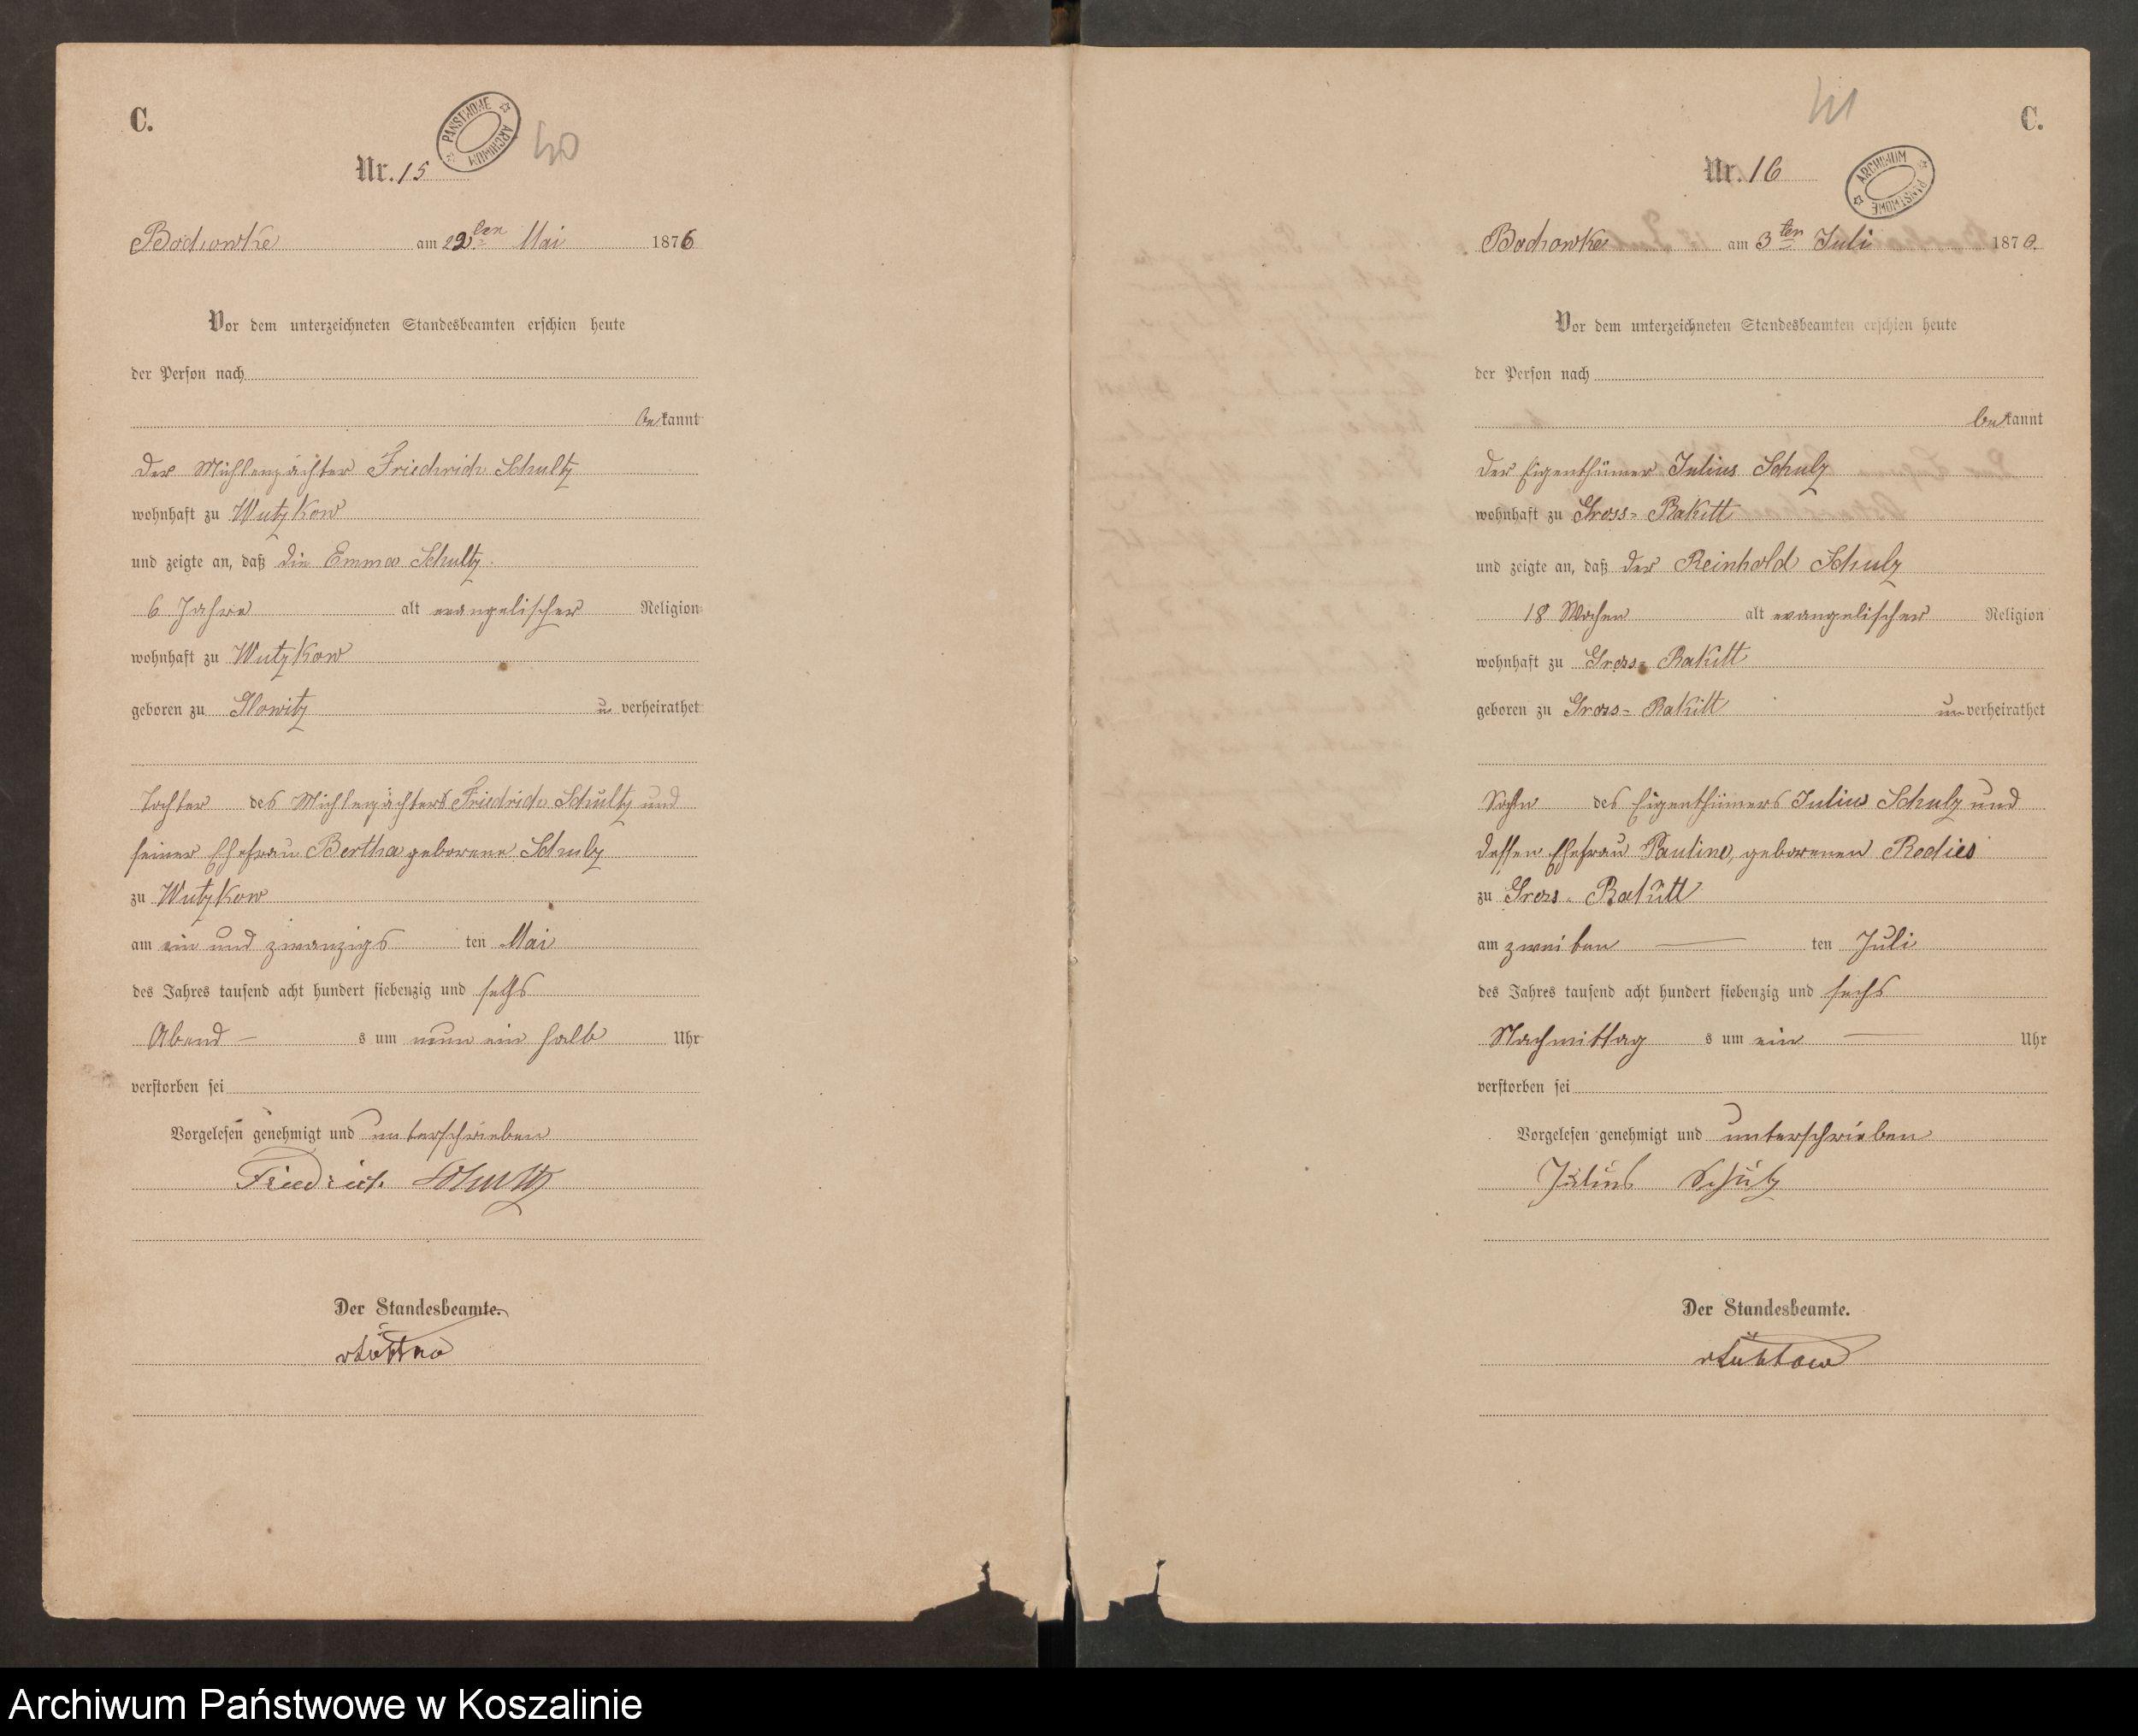 C.
PAŃSTWOWE ARCHIWUM
40
Nr. 15
Bochowke am 22ten Mai 1876
Vor dem unterzeichneten Standesbeamten erschien heute
der Person nach
bekannt
der Mühlenpächter Friedrich Schultz
wohnhaft zu Wutzkow
und zeigte an, daß die Emma Schultz
6 Jahre alt evangelischer Religion
wohnhaft zu Wutzkow
geboren zu Glowitz unverheirathet
Tochter des Mühlenpächters Friedrich Schultz und
seiner Ehefrau Bertha geborene Schulz
zu Wutzkow
am ein und zwanzigs ten Mai
des Jahres tausend acht hundert siebenzig und sechs
Abend s um neun ein halb Uhr
verstorben sei
Vorgelesen genehmigt und unterschrieben
Friedrich Schultz
Der Standesbeamte.
41
C.
Nr. 16
ARCHIWUM PAŃSTWOWE
Bochowke am 3ten Juli 1876.
Vor dem unterzeichneten Standesbeamten erschien heute
der Person nach
bekannt
der Eigenthümer Julius Schulz
wohnhaft zu Gross-Rakitt
und zeigte an, daß der Reinhold Schulz
18 Wochen alt evangelischer Religion
wohnhaft zu Gross-Rakitt
geboren zu Gross-Rakitt unverheirathet
Sohn des Eigenthümers Julius Schulz und
dessen Ehefrau Pauline, geborenen Redies
zu Gross-Rakitt
am zweiten ten Juli
des Jahres tausend acht hundert siebenzig und sechs
Nachmittag s um ein Uhr
verstorben sei
Vorgelesen genehmigt und unterschrieben
Julius Schulz
Der Standesbeamte.
Archiwum Państwowe w Koszalinie